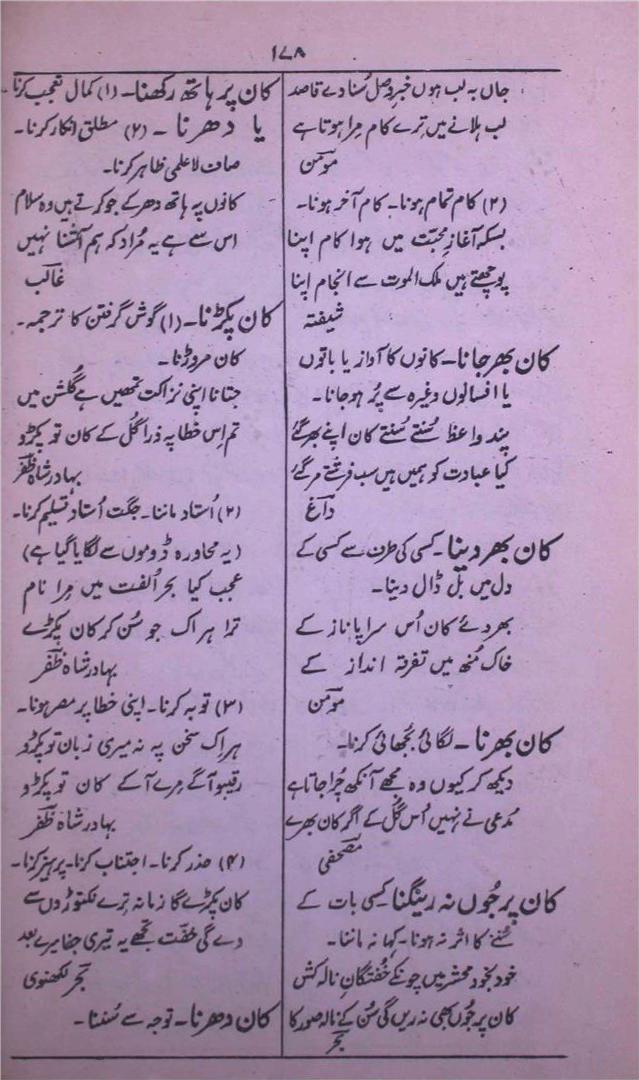 ۱۷۸
جاں بہ لب ہوں خبرِ وصل سُنا دے قاصد
لب ہلانے میں ترے کام مرا ہوتا ہے
مومن
(۲) کام تمام ہونا۔ کام آخر ہونا۔
بسکہ آغازِ محبت میں ہوا کام اپنا
پوچھتے ہیں ملک الموت سے انجام اپنا
شیفتہ
کان بھر جانا۔ کانوں کا آواز یا باتوں
یا افسانوں وغیرہ سے پُر ہو جانا۔
پندِ واعظ سُنتے سُنتے کان اپنے بھر گئے
کیا عبادت کو ہمیں ہیں سب فرشتے مر گئے
داغ
کان بھر دینا۔ کسی کی طرف سے کسی کے
دل میں بل ڈال دینا۔
بھر دئے کان اُس سراپا ناز کے
خاک مُنھ میں تفرقہ انداز کے
مومن
کان بھرنا۔ لگائی بُجھائی کرنا۔
دیکھ کر کیوں وہ مجھے آنکھ چُرا جاتا ہے
مدعی نے نہیں اُس گُل کے اگر کان بھرے
مصحفی
کان پر جُوں نہ رینگنا کسی بات کے
سُننے کا اثر نہ ہونا۔ کہا نہ ماننا۔
خود بخود محشر میں چونکے خفتگانِ نالہ کش
کان پر جُوں بھی نہ رینگی سُن کے نالہ صور کا
بحر
کان پر ہاتھ رکھنا۔ (۱) کمال تعجب کرنا۔
یا دھرنا۔ (۲) مطلق انکار کرنا۔
صاف لاعلمی ظاہر کرنا۔
کانوں پہ ہاتھ دھر کے جو کرتے ہیں وہ سلام
اس سے ہے یہ مُراد کہ ہم آشنا نہیں
غالب
کان پکڑنا۔ (۱) گوش گرفتن کا ترجمہ۔
کان مروڑنا۔
جتانا اپنی نزاکت تمھیں ہے گُلشن میں
تم اِس خطا پہ ذرا گُل کے کان تو پکڑو
بہادر شاہ ظفر
(۲) اُستاد ماننا۔ جگت اُستاد تسلیم کرنا۔
(یہ محاورہ ڈوموں سے لگایا گیا ہے)
عجب کیا بحرِ اُلفت میں مرا نام
ترا ہر اک جو سُن کر کان پکڑے
بہادر شاہ ظفر
(۳) توبہ کرنا۔ اپنی خطا پر مصر ہونا۔
ہر اک سخن پہ نہ میری زبان تو پکڑو
رقیبو آگے مرے آ کے کان تو پکڑو
بہادر شاہ ظفر
(۴) حذر کرنا۔ اجتناب کرنا۔ پرہیز کرنا۔
کان پکڑے گا زمانہ ترے نکتوڑوں سے
دے گی خفت تجھے یہ تیری جفا میرے بعد
بحر لکھنوی
کان دھرنا۔ توجہ سے سُننا۔